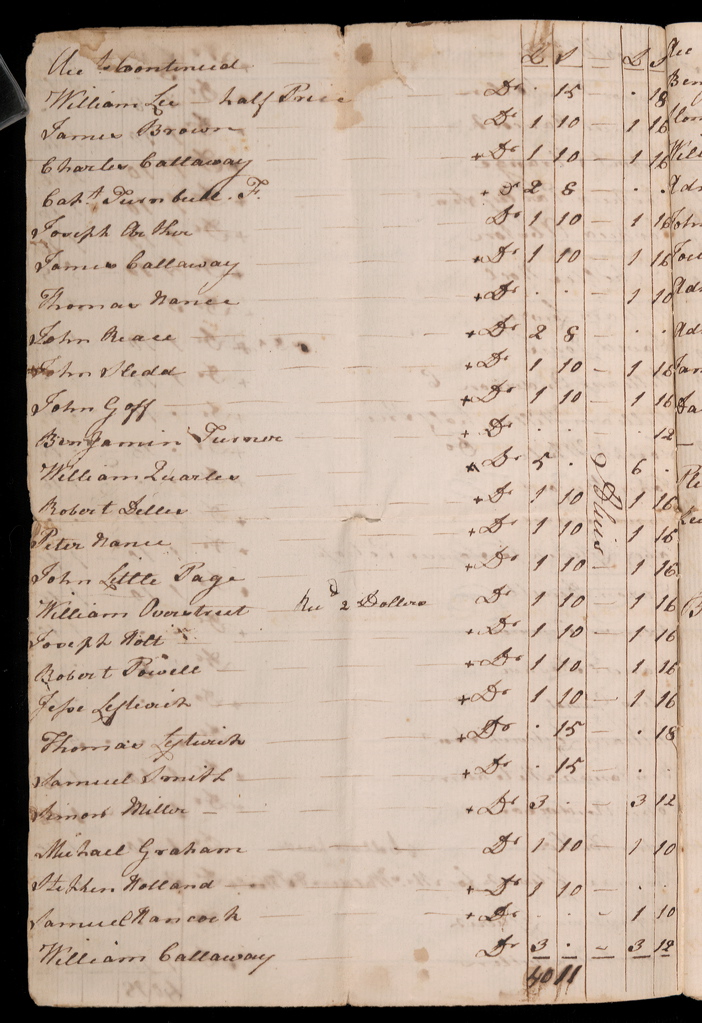 Acct Continued £ S — £ S
William Lee — half Price Dr . 15 . 18
James Brown Dr 1 10 — 1 16
Charles Callaway + Dr 1 10 — 1 16
Capt Turnbull. F. + 2 8 — . .
Joseph Arthur Dr 1 10 — 1 16
James Callaway + Dr 1 10 — 1 16
Thomas Nance + Dr . . — 1 10
John Reace + Dr 2 8 — . .
John Sledd + Dr 1 10 — 1 16
John Goff + Dr 1 10 — 1 16
Benjamin Turner + Dr . . . 12
William Quarles + Dr 5 . 6 .
Robert + Dr 1 10 1 16
Peter Nance + Dr 1 10 1 16
John Little Page + Dr 1 10 — 1 16
William Overstreet Recd 2 Dollers Dr 1 10 — 1 16
Joseph Holt + Dr 1 10 — 1 16
Robert Powell + Dr 1 10 — 1 16
Jesse Leftwich + Dr 1 10 — 1 16
Thomas Leftwich + Dr . 15 — . 18
Samuel Smith + Dr . 15 — . .
Simon Miller — + Dr 3 . — 3 12
Michael Graham Dr 1 10 — 1 10
Stephen Holland + Dr 1 10 — .
Samuel Hancock + Dr . . - 1 10
William Callaway Dr 3 . - 3 12
40 11